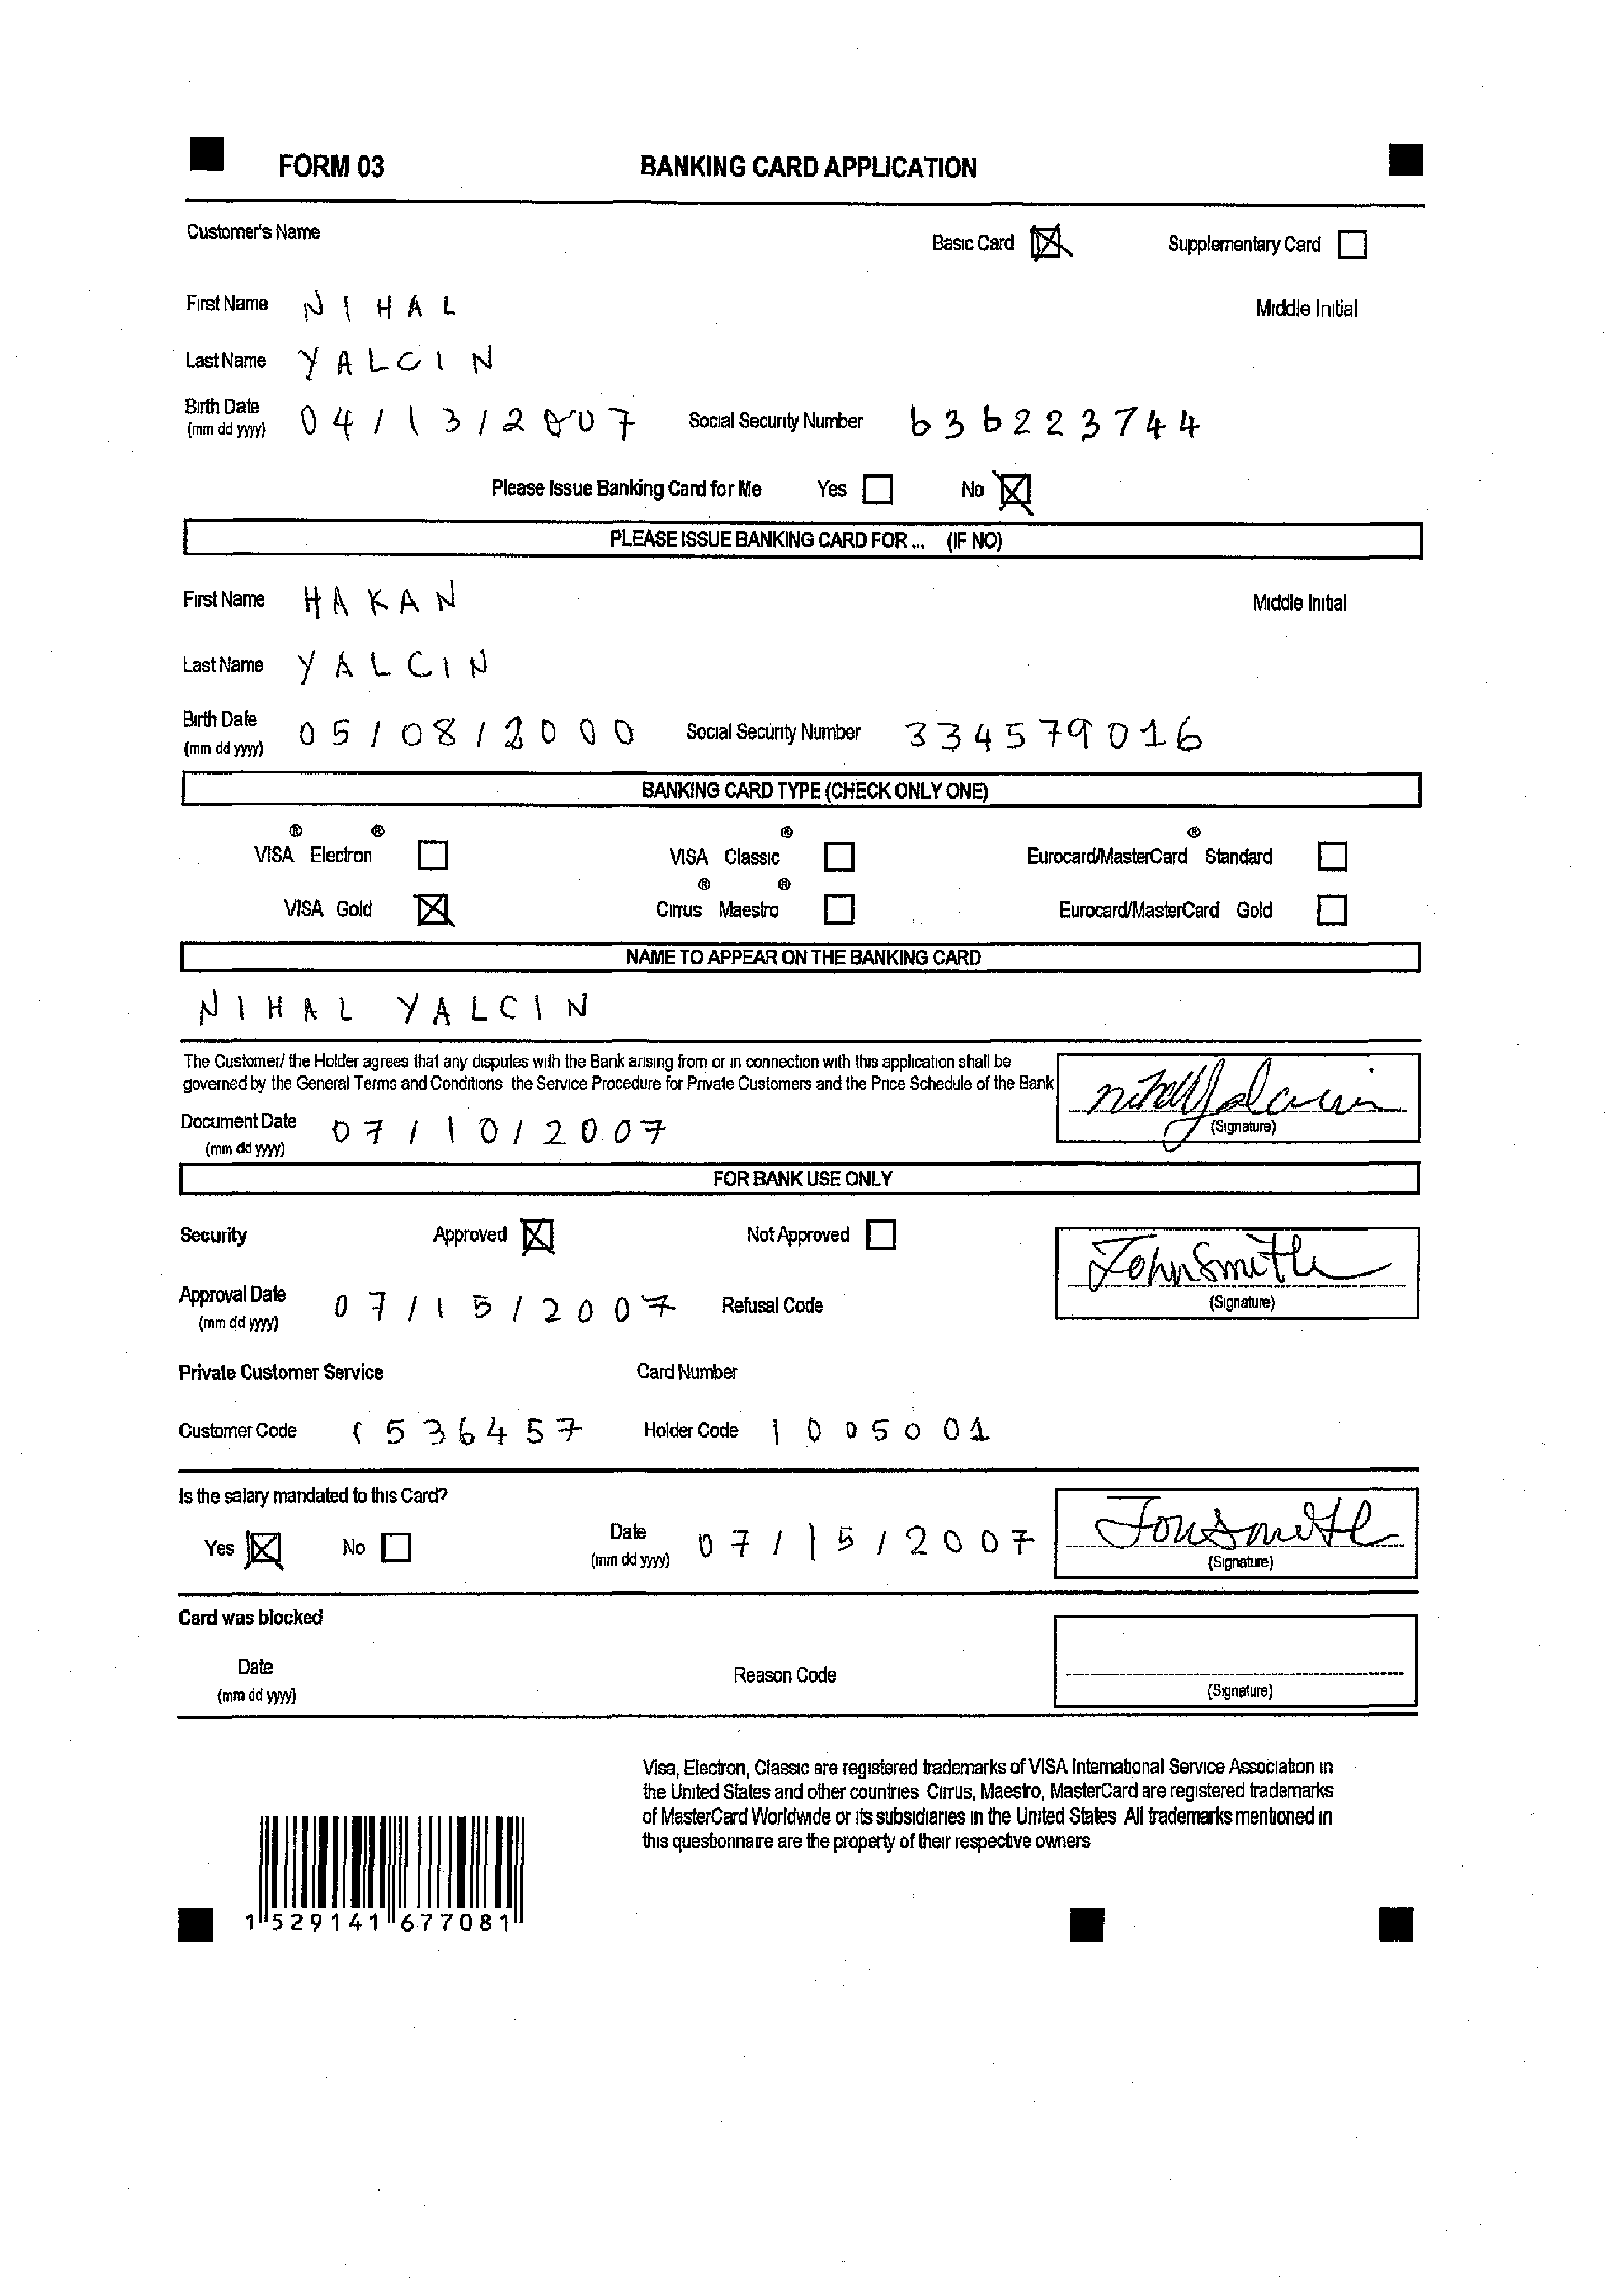 FORM 03 BANKING CARD APPLICATION
Customer's Name Basic Card Supplementary Card
First Name NIHAL Middle Initial
Last Name YALCIN
Birth Date (mm dd yyyy) 04/13/2007 Social Security Number 636223744
Please Issue Banking Card for Me Yes No
PLEASE ISSUE BANKING CARD FOR ... (IF NO)
First Name HAKAN Middle Initial
Last Name YALCIN
Birth Date (mm dd yyyy) 05/08/2000 Social Security Number 334579016
BANKING CARD TYPE (CHECK ONLY ONE)
VISA® Electron® VISA Classic® Eurocard/MasterCard® Standard
VISA Gold Cirrus® Maestro® Eurocard/MasterCard Gold
NAME TO APPEAR ON THE BANKING CARD
NIHAL YALCIN
The Customer/ the Holder agrees that any disputes with the Bank arising from or in connection with this application shall be
governed by the General Terms and Conditions the Service Procedure for Private Customers and the Price Schedule of the Bank
nihal yalcin
(Signature)
Document Date (mm dd yyyy) 07/10/2007
FOR BANK USE ONLY
Security Approved Not Approved
John Smith
(Signature)
Approval Date (mm dd yyyy) 07/15/2007 Refusal Code
Private Customer Service Card Number
Customer Code 1536457 Holder Code 1005001
Is the salary mandated to this Card?
Yes No Date (mm dd yyyy) 07/15/2007
(Signature)
Card was blocked
Date (mm dd yyyy) Reason Code
(Signature)
Visa, Electron, Classic are registered trademarks of VISA International Service Association in
the United States and other countries Cirrus, Maestro, MasterCard are registered trademarks
of MasterCard Worldwide or its subsidiaries in the United States All trademarks mentioned in
this questionnaire are the property of their respective owners
1 529141 677081